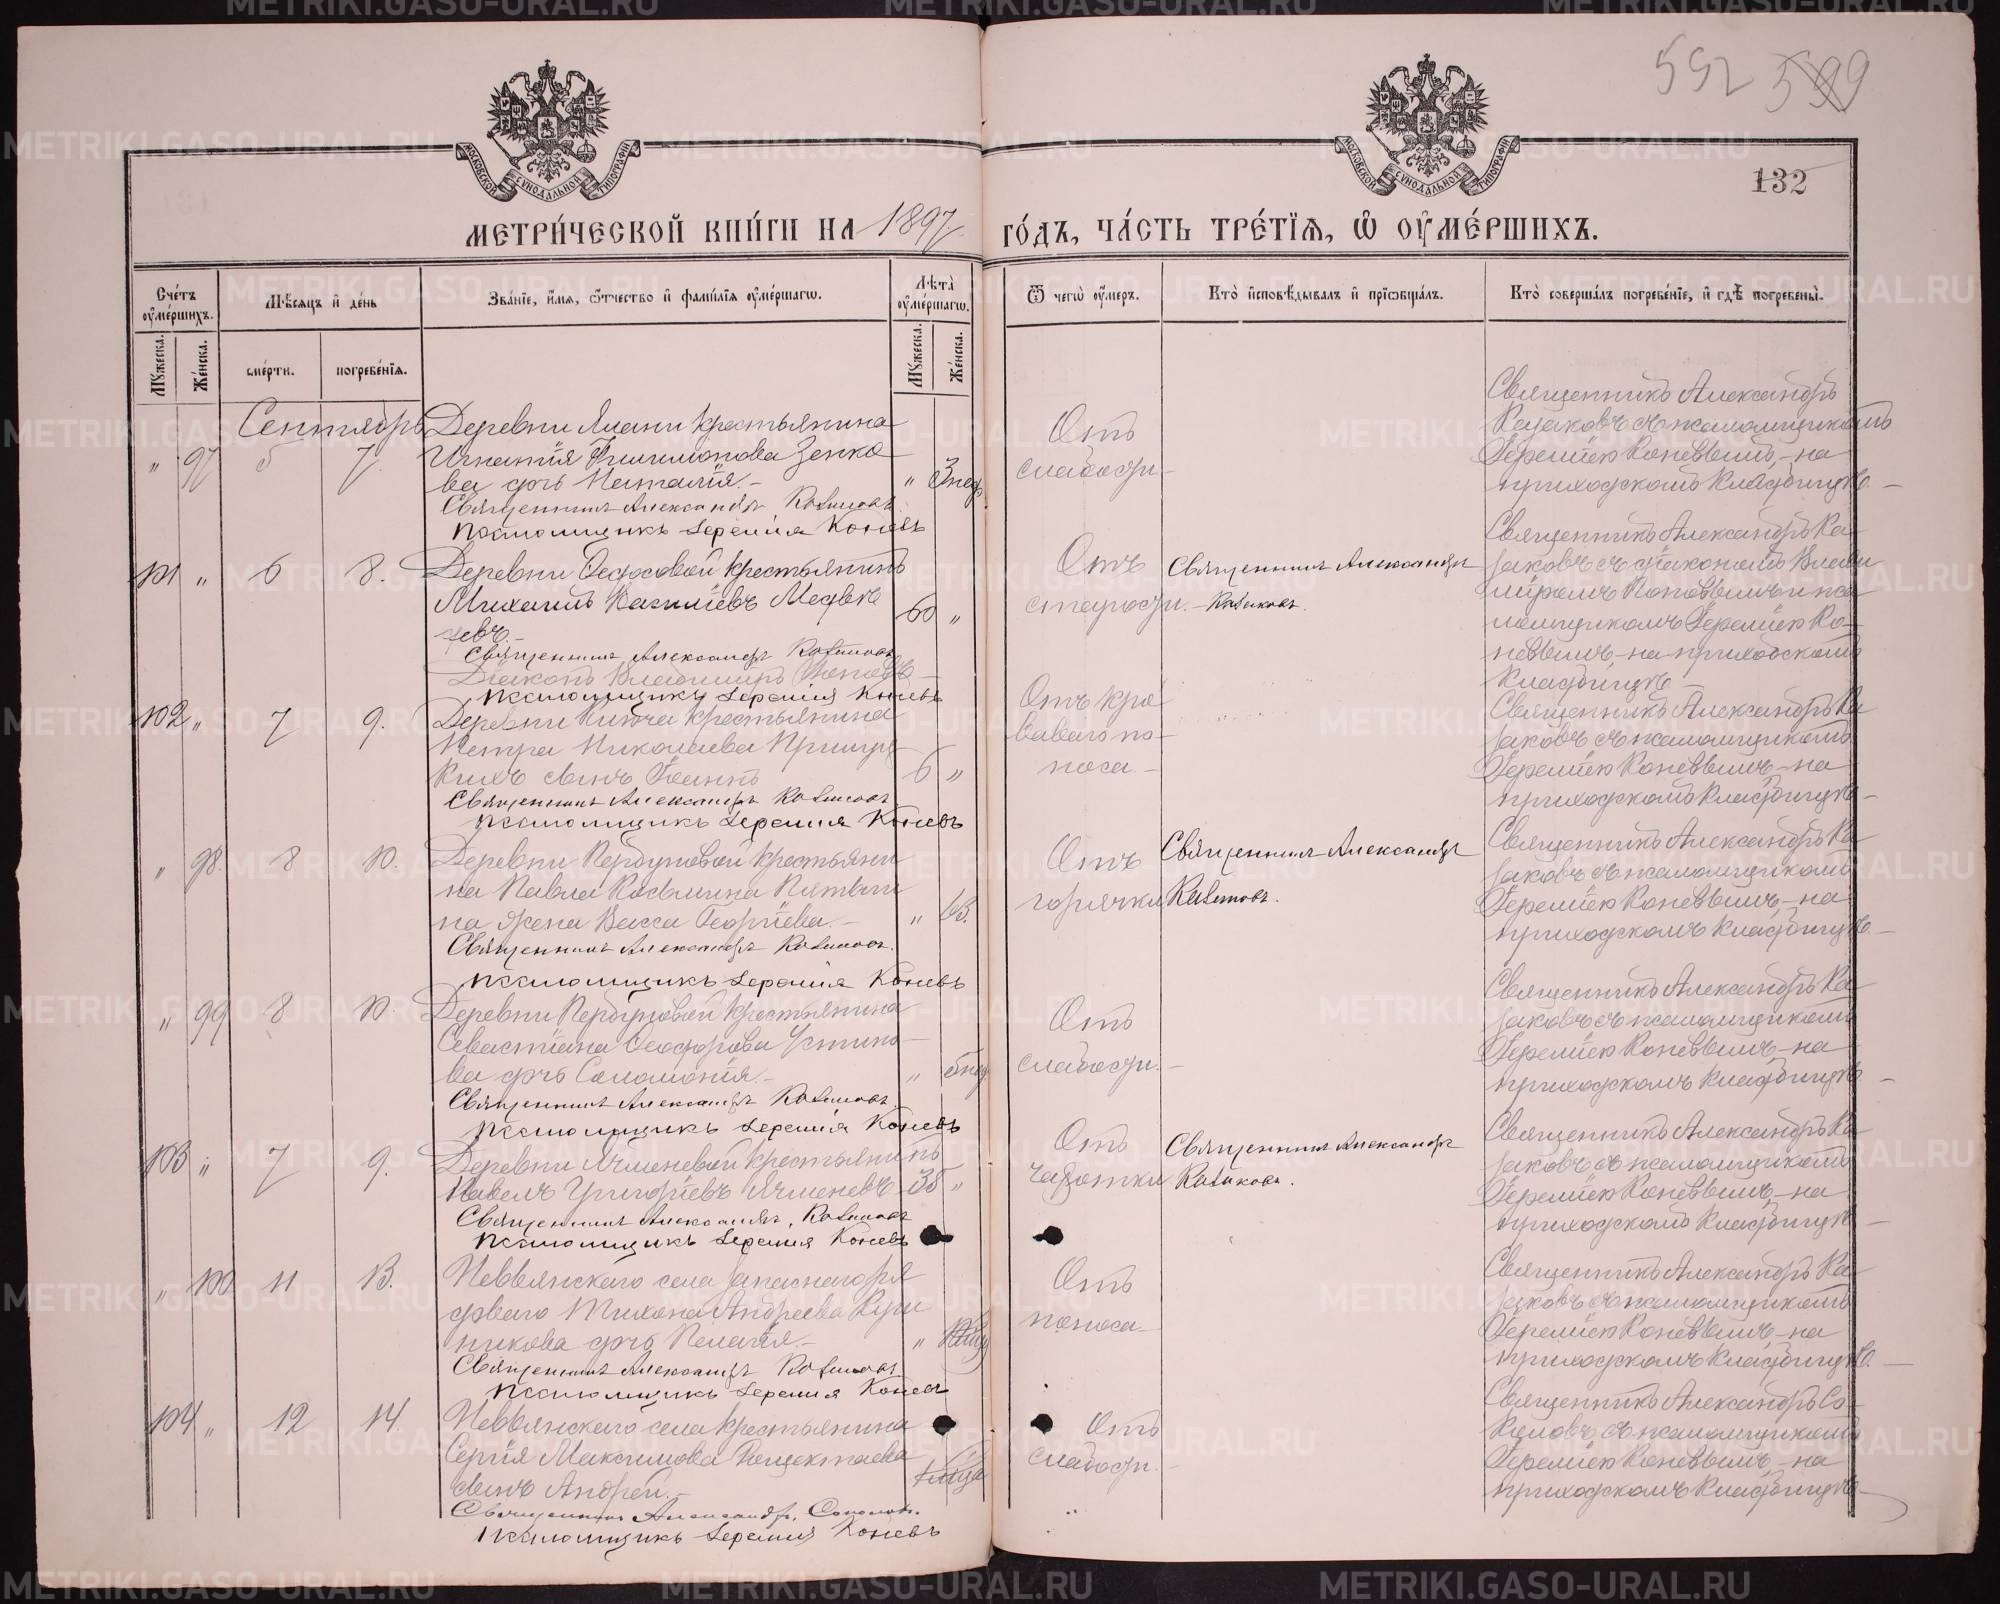 592 599
132
МОСКОВСКОЙ СѴНОДАЛЬНОЙ ТИПОГРАФІИ
МОСКОВСКОЙ СѴНОДАЛЬНОЙ ТИПОГРАФІИ
МЕТРИ́ЧЕСКОЙ КНИ́ГИ НА 1897 ГО́ДЪ, ЧА́СТЬ ТРЕ́ТІѦ, Ѡ҆ ОУ҆МЕ́РШИХЪ.
Сче́тъ оу҆ме́ршихъ.
Мꙋжеска.
Же́нска.
Мѣ́сѧцъ и҆ де́нь
сме́рти.
погребе́нїѧ.
Зва́нїе, и҆́мѧ, ѻ҆́тчество и҆ фами́лїѧ оу҆ме́ршагѡ.
Лѣ́та оу҆ме́ршагѡ.
Мꙋ́жеска.
Же́нска.
Ѿ чегѡ̀ оу҆́меръ.
Кто̀ и҆сповѣ́дывалъ и҆ прїѡбща́лъ.
Кто̀ соверша́лъ погребе́нїе, и҆ гдѣ̀ погребены̀.
Сентябрь
" 97 5 7. " 3 нед
Деревни Ялани крестьянина
Игнатія Филимонова Зенко
ва дчь Наталія.-
Священникъ Александръ Казаковъ
Псаломщикъ Іеремія Коневъ
Отъ
слабости.
Священникъ Александръ
Казаковъ съ псаломщикомъ
Іереміею Коневымъ, на
приходскомъ кладбищѣ.
101 " 6 8. 60 "
Деревни Федосовой крестьянинъ
Михаилъ Васильевъ Медвѣ
девъ.-
Священникъ Александръ Казаковъ
Діаконъ Владиміръ Поповъ
Псаломщикъ Іеремія Коневъ
Отъ
старости.
Священникъ Александръ
Казаковъ.
Священникъ Александръ Ка-
заковъ съ діакономъ Влади
міромъ Поповымъ и пса
ломщикомъ Іереміею Ко-
невымъ, на приходскомъ
кладбищѣ
102 " 7 9. 6 "
Деревни Ключа крестьянина
Петра Николаева
сынъ Іоаннъ
Священникъ Александръ Казаковъ
Псаломщикъ Іеремія Коневъ
Отъ кро
ваваго по-
носа.
Священникъ Александръ Ка
заковъ съ псаломщикомъ
Іереміею Коневымъ, на
приходскомъ кладбищѣ
" 98. 8 10. "
Деревни Первуновой крестьяни
на Павла Косьмина Пятыги
на жена Васса Георгіева.-
Священникъ Александръ Казаковъ.
Псаломщикъ Іеремія Коневъ
Отъ
горячки
Священникъ Александръ
Казаковъ.
Священникъ Александръ Ка
заковъ съ псаломщикомъ
Іереміею Коневымъ, на
приходскомъ кладбищѣ.
" 99 8 10. " 5 нед
Деревни Первуновой крестьянина
Севастіана Феодорова Устино-
ва дчь Саломонія.-
Священникъ Александръ Казаковъ.
Псаломщикъ Іеремія Коневъ
Отъ
слабости.
Священникъ Александръ Ка-
заковъ съ псаломщикомъ
Іереміею Коневымъ, на
приходскомъ кладбищѣ.
103 " 7 9. "
Деревни Ячменевой крестьянинъ
Павелъ Григорьевъ Ячменевъ
Священникъ Александръ Казаковъ
Псаломщикъ Іеремія Коневъ
Отъ
чахотки
Священникъ Александръ
Казаковъ.
Священникъ Александръ Ка
заковъ съ псаломщикомъ
Іереміею Коневымъ, на
приходскомъ кладбищѣ
" 100 11 13. "
Невьянскаго села запаснаго ря
доваго Тихона Андреева Куш
никова дчь Пелагія.-
Священникъ Александръ Казаковъ
Псаломщикъ Іеремія Коневъ
Отъ
поноса.
Священникъ Александръ Ка-
заковъ съ псаломщикомъ
Іереміею Коневымъ, на
приходскомъ кладбищѣ.
104 " 12 14.
Невьянскаго села крестьянина
Сергія Максимова
сынъ Андрей.-
Священникъ Александръ Соколовъ.
Псаломщикъ Іеремія Коневъ
Отъ
слабости.
Священникъ Александръ Со-
коловъ съ псаломщикомъ
Іереміею Коневымъ, на
приходскомъ кладбищѣ
METRIKI.GASO-URAL.RU